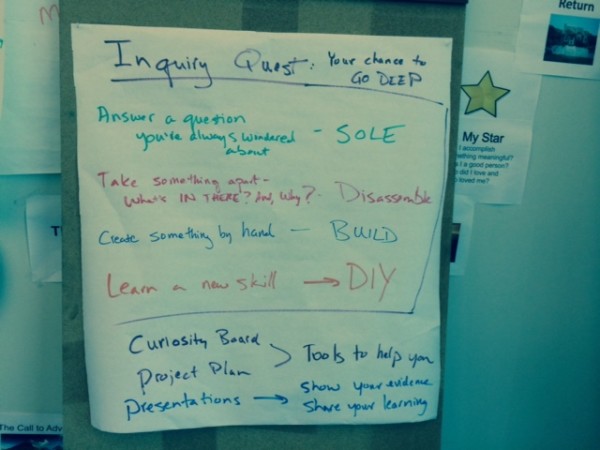 Inquiry Quest: Your chance to
GO DEEP
Answer a question
you've always wondered
about - SOLE
Take something apart -
What's IN THERE? And, Why? - Disassemble
Create something by hand - BUILD
Learn a new skill → DIY
Curiosity Board
Project Plan > Tools to help you
Presentations → show your evidence
share your learning
Return
My Star
I accomplish
ething meaningful?
I a good person?
did I love and
loved me?
The Call to Adv
T